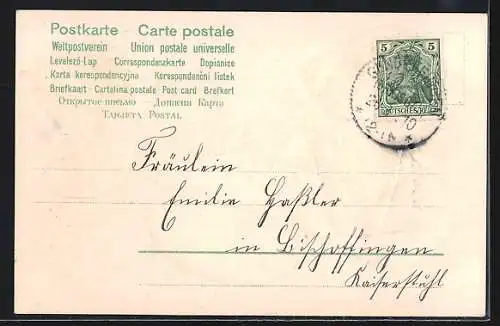 Postkarte Carte postale
Weltpostverein Union postale universelle
Levelező-Lap Correspondenzkarte Dopisnice
Karta korespondencyjna Korespondenční lístek
Briefkaart Cartolina postale Post card Brefkort
Открытое письмо Дописна Карта
Tarjeta Postal
5 5
DEUTSCHES REICH
Fräulein
Emilie Haßler
in Bischoffingen
Kaiserstuhl